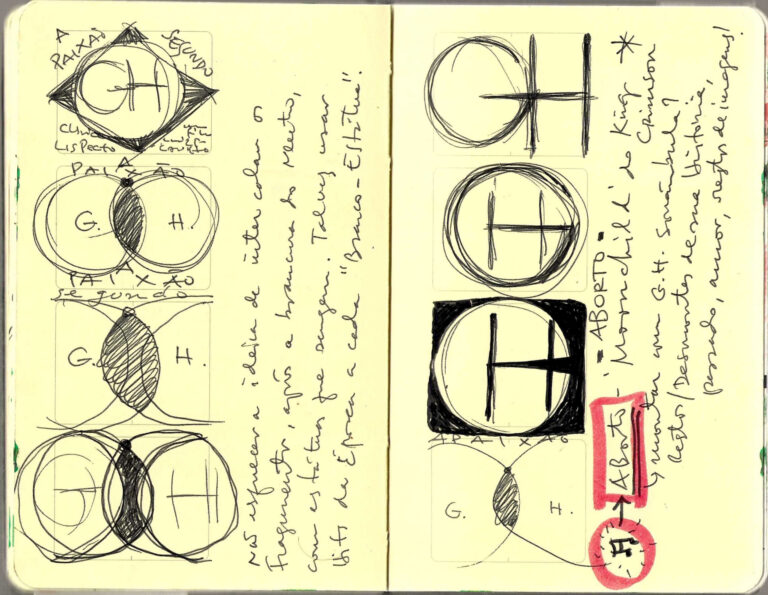 A PAIXÃO
SEGUNDO
GH
CLARICE
LISPECTOR
A
PAIXÃO
G. H.
A
PAIXÃO
segundo
G. H.
G H
Não esquecer a ideia de intercalar os
Fragmentos, após a brancura do
com estátuas que surgem. Talvez usar
hits da Época a cada "Branco-Estátua".
GH
H
H
A PAIXÃO
G. H.
- ABORTO -
Aborto - 'Moonchild' do King Crimson *
↳ montar com G.H. Sonâmbula?
Restos/Desmontes de sua história,
passado, amor, restos de imagens!